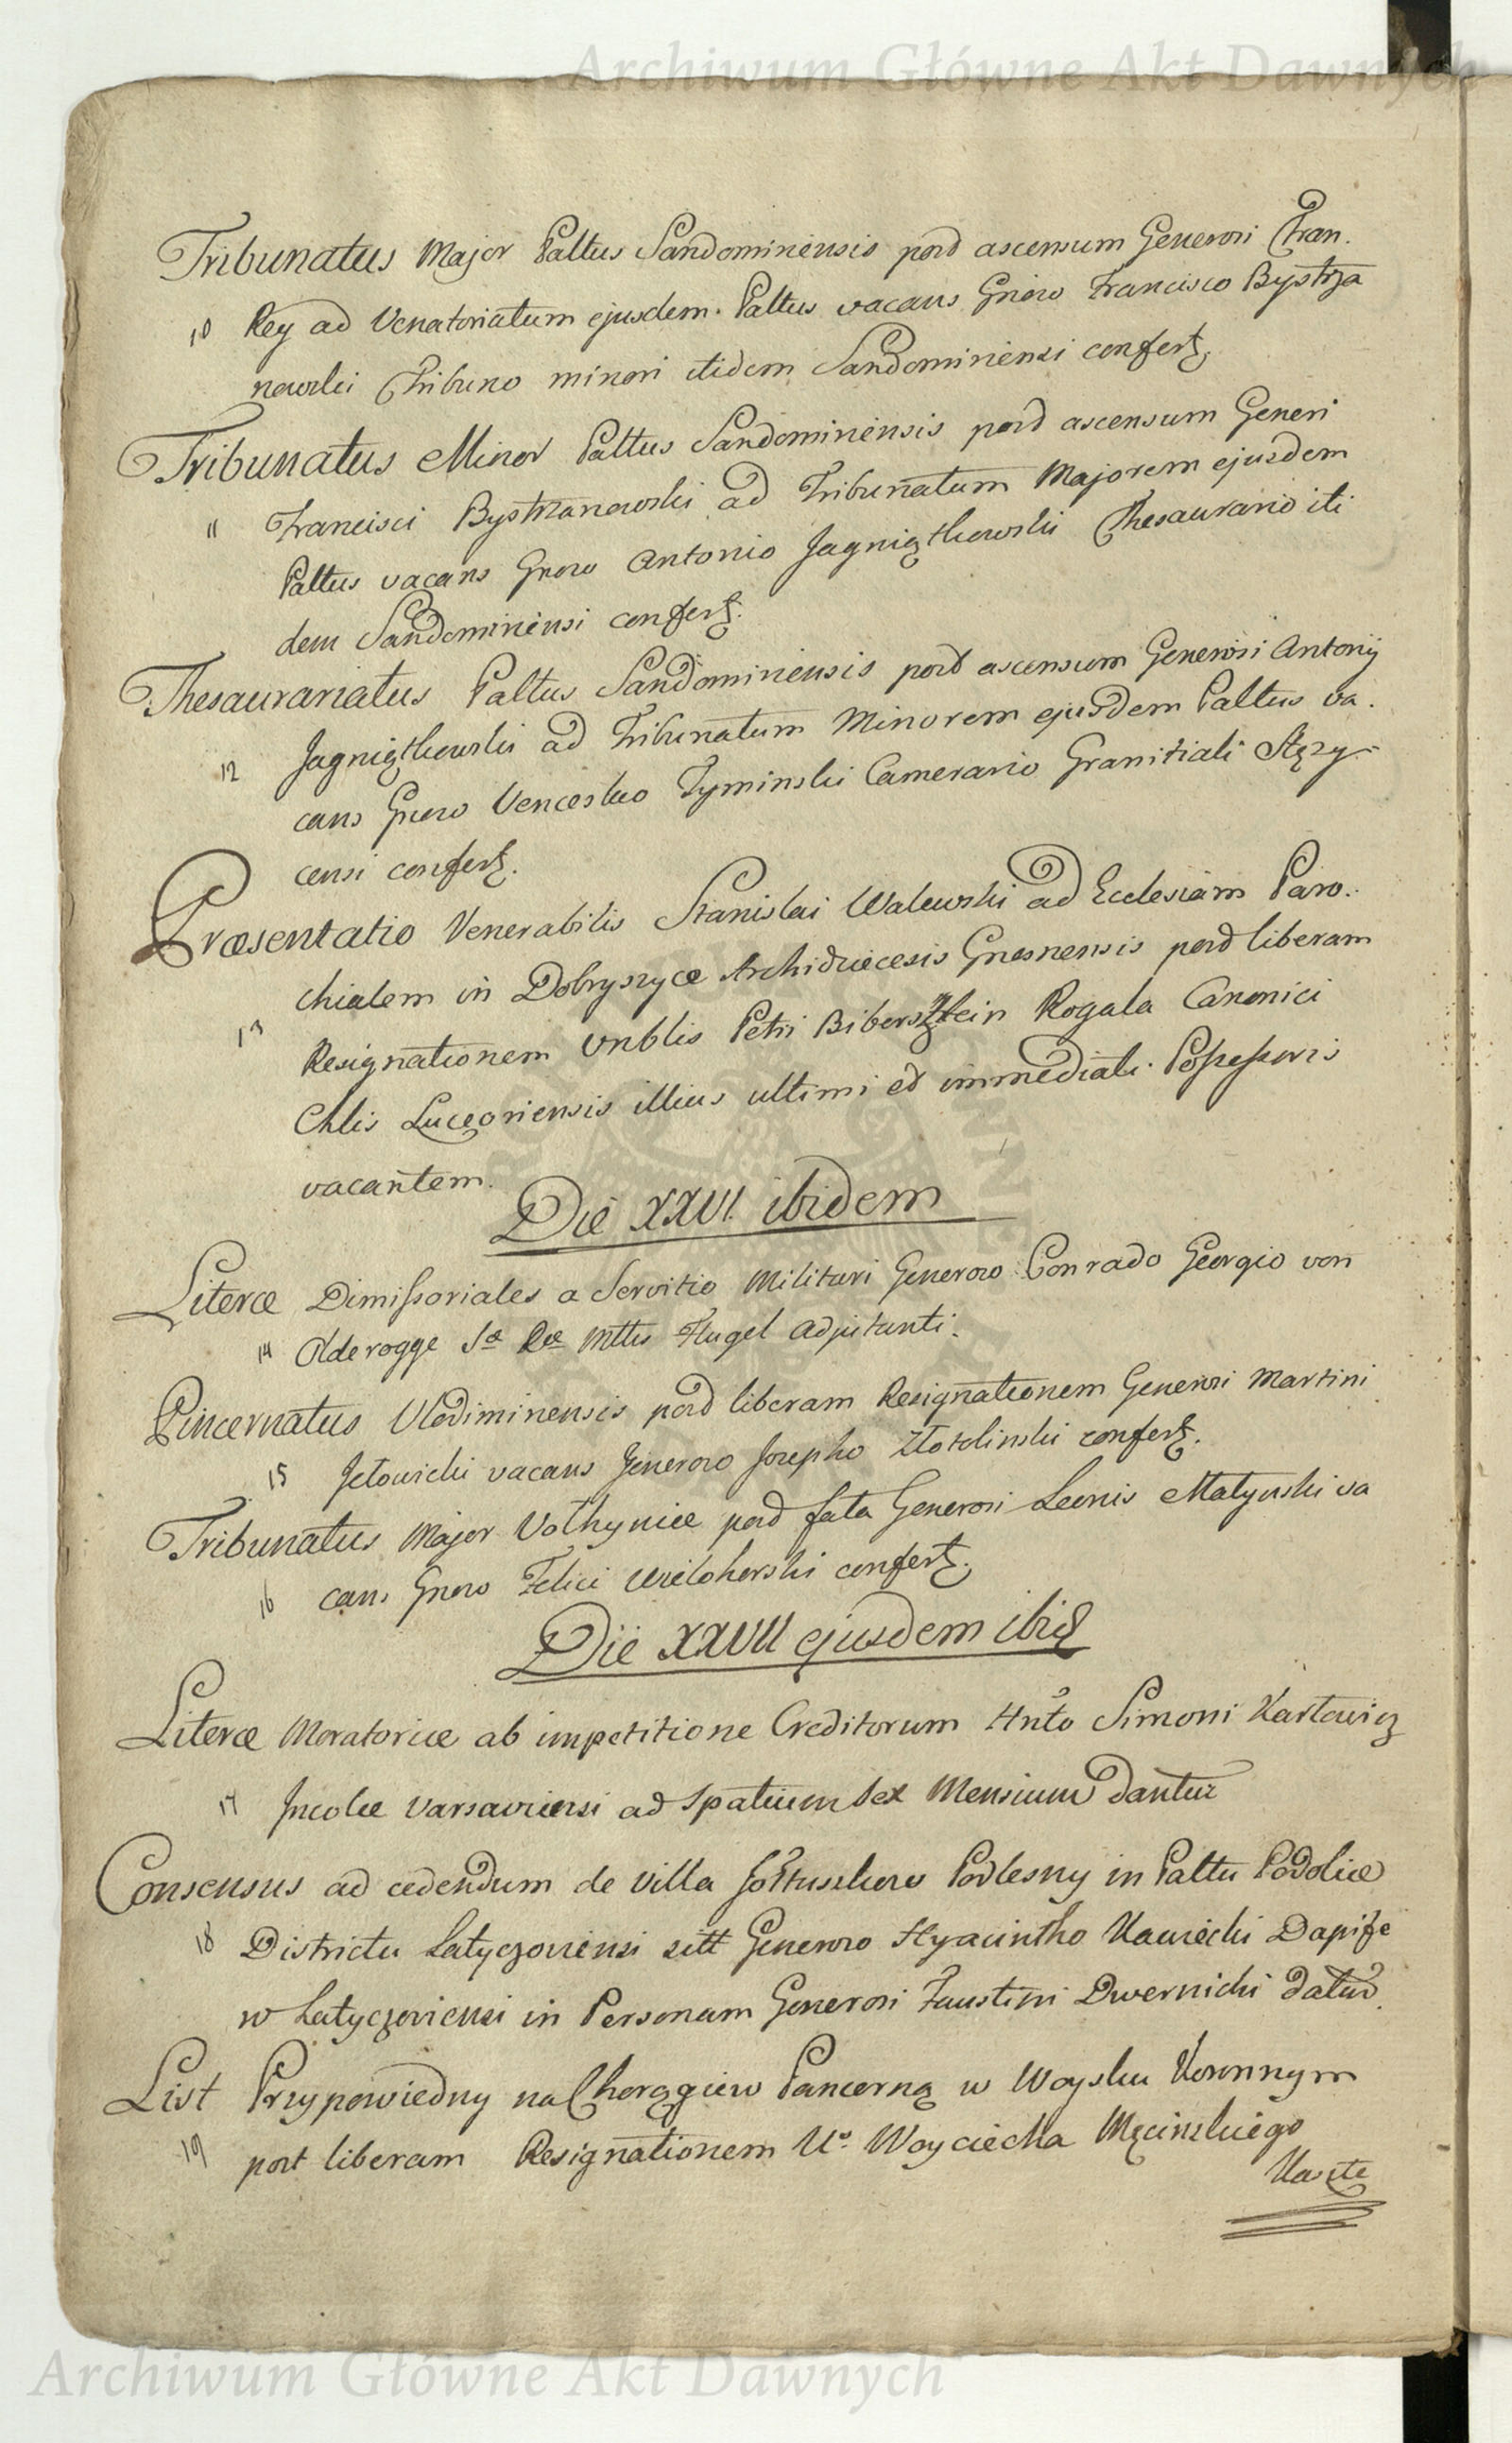 Archiwum Główne Akt Dawnych
Tribunatus Major Paltus Sandomiriensis post ascensum Generosi Fran.
10 Rey ad Venatoriatum ejusdem Paltus vacans Gnoso Francisco Bystrza
nowski Tribuno minori itidem Sandomiriensi confert.
Tribunatus Minor Paltus Sandomiriensis post ascensum Generi
11 Francisci Bystrzanowski ad Tribunatum Majorem ejusdem
Paltus vacans Gnoso Antonio Jagniątkowski Thesaurario iti
dem Sandomiriensi confert.
Thesaurariatus Paltus Sandomiriensis post ascensum Generosi Antonij
12 Jagniątkowski ad Tribunatum Minorem ejusdem Paltus va.
cans Gnoso Venceslao Tyminski Camerario Granitiali Stęzy-
censi confert.
Præsentatio Venerabilis Stanislai Walewski ad Ecclesiam Paro.
chialem in Dobryszyce Archidiœcesis Gnesnensis post liberam
13 Resignationem Vnblis Petri Bibersztein Rogala Canonici
Chlis Luceoriensis illius ultimi et immediati Possessoris
vacantem.
Die XXVI. ibidem
Literæ Dimissoriales a Servitio Militari Generoso Conrado Georgio von
14 Olderogge Sæ Ræ Mttis Flugel Adjutanti.
Pincernatus Vlodimiriensis post liberam Resignationem Generosi Martini
15 Jełowicki vacans Generoso Josepho Złotolinski confert.
Tribunatus Major Volhyniæ post fata Generosi Leonis Małynski va
16 cans Gnoso Felici Wielohorski confert.
Die XXVII ejusdem ibid
Literæ Moratoriæ ab impetitione Creditorum Hnto Simoni Karlowicz
17 Incolæ Varsaviensi ad Spatium Sex Mensium dantur
Consensus ad cedendum de Villa Podlesny in Paltu Podoliæ
18 Districtu Latyczoviensi sitt Generoso Hyacintho Kawiecki Dapife
ro Latyczoviensi in Personam Generosi Faustini Dwernicki datur.
List Przypowiedny na Chorągiew Pancerną w Woysku Koronnym
19 post liberam Resignationem Uo. Woyciecha Męcinskiego
Kaszte
Archiwum Główne Akt Dawnych